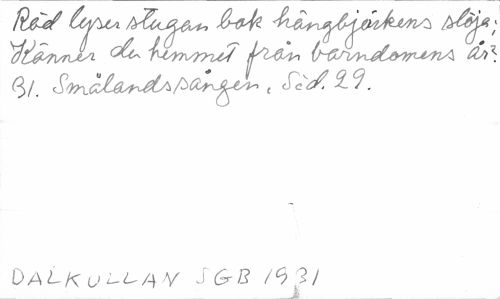 Röd lyser stugan bak hängbjörkens slöja;
Känner du hemmet från barndomens år?
31. Smålandssången, Sid. 29.
DALKULLAN SGB 1931